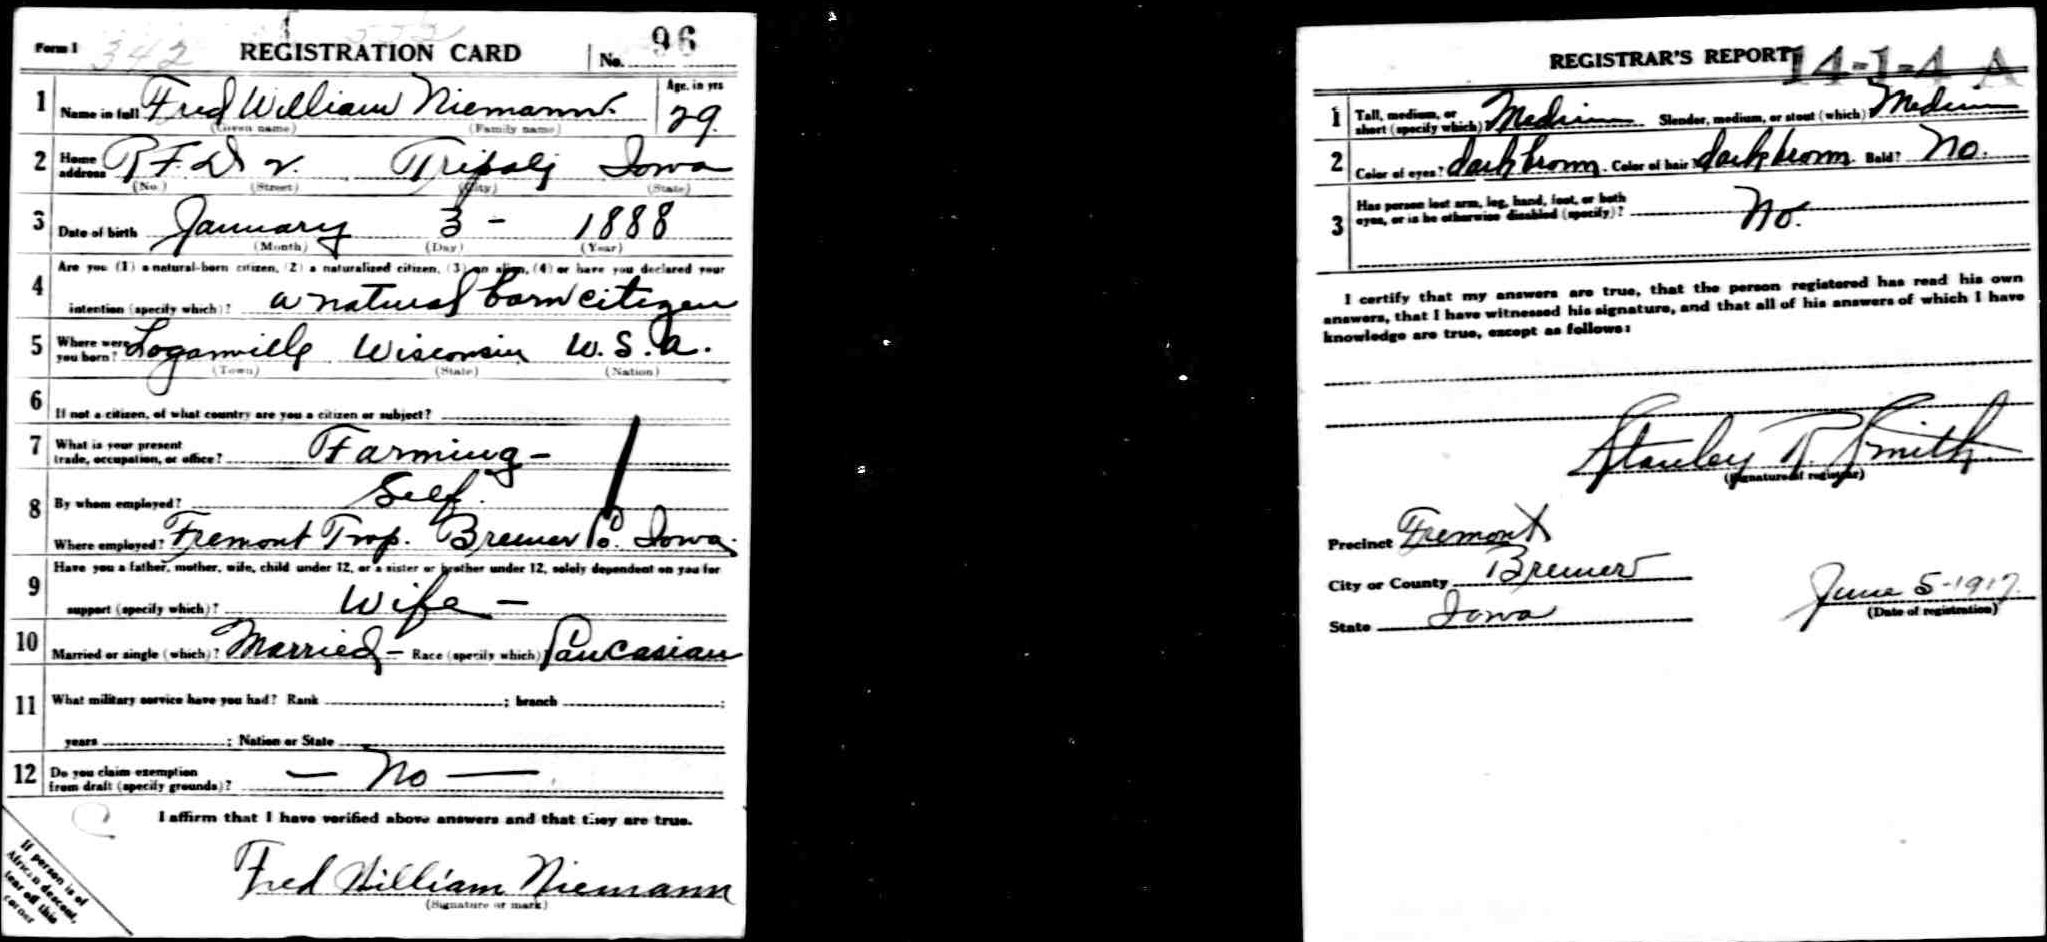 Form 1 342 REGISTRATION CARD No. 96
1 Name in full Fred William Niemann. Age, in yrs 29.
(Given name) (Family name)
2 Home address R F. D 2. Tripoli Iowa
(No.) (Street) (City) (State)
3 Date of birth January 3 - 1888
(Month) (Day) (Year)
4 Are you (1) a natural-born citizen, (2) a naturalized citizen, (3) an alien, (4) or have you declared your
intention (specify which)? a natural born citizen
5 Where were you born? Loganville Wisconsin U. S. A.
(Town) (State) (Nation)
6 If not a citizen, of what country are you a citizen or subject?
7 What is your present trade, occupation, or office? Farming -
8 By whom employed? Self.
Where employed? Fremont Twp. Bremer Co. Iowa.
9 Have you a father, mother, wife, child under 12, or a sister or brother under 12, solely dependent on you for
support (specify which)? Wife -
10 Married or single (which)? Married - Race (specify which) Caucasian
11 What military service have you had? Rank ; branch ;
years ; Nation or State
12 Do you claim exemption from draft (specify grounds)? — No —
I affirm that I have verified above answers and that they are true.
Fred William Niemann
(Signature or mark)
If person is of
African descent,
tear off this
corner
REGISTRAR'S REPORT 14-1-4 A
1 Tall, medium, or short (specify which)? Medium Slender, medium, or stout (which)? Medium
2 Color of eyes? dark brown. Color of hair? dark brown. Bald? No.
3 Has person lost arm, leg, hand, foot, or both
eyes, or is he otherwise disabled (specify)? No.
I certify that my answers are true, that the person registered has read his own
answers, that I have witnessed his signature, and that all of his answers of which I have
knowledge are true, except as follows:
Stanley R. Smith
(Signature of registrar)
Precinct Fremont
City or County Bremer
State Iowa
June 5-1917.
(Date of registration)